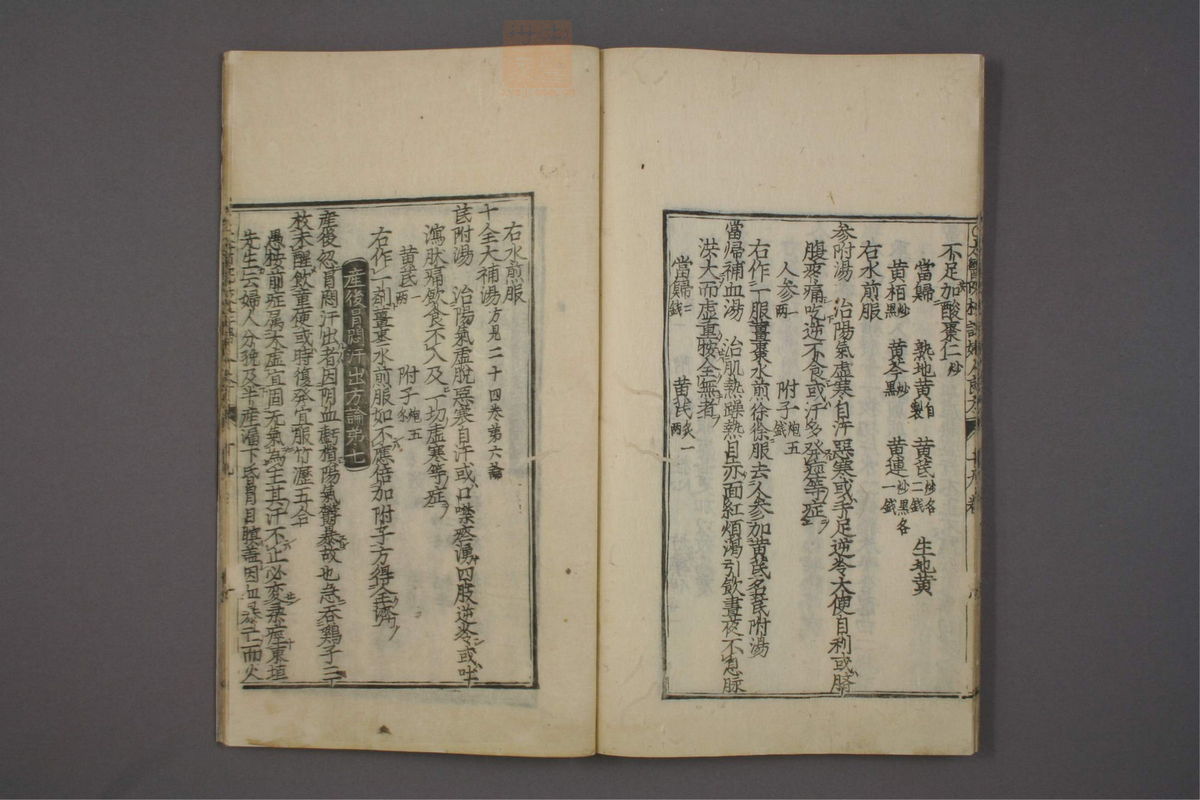 不足加酸棗仁炒
當歸 熟地黄自製 黄芪炒各二錢 生地黄
黄栢炒黒 黄芩炒黒 黄連炒黒各一錢
右水煎服
参附湯 治陽氣虚寒自汗惡寒或手足逆冷大便自利或臍
腹疼痛吃逆不食或汗多發痙等症
人参一兩 附子炮五錢
右作一服薑棗水煎徐徐服去人参加黄芪名芪附湯
當帰補血湯 治肌熱躁熱目赤面紅煩渇引飲晝夜不息脉
洪大而虚重按全無者
當歸二錢 黄芪炙一兩
右水煎服
十全大補湯方見二十四巻第六論
芪附湯 治陽氣虚脱惡寒自汗或口噤痰湧四肢逆冷或吐
瀉腹痛飲食不入及一切虚寒等症
黄芪一兩 附子炮五
右作一劑薑棗水煎服如不應倍加附子方得全濟
産後冒悶汗出方論第七
産後忽冒悶汗出者因陰血虧損陽氣鬱暴故也急吞鶏子三
枚未醒飲童便或時復発宜服竹瀝五合
愚按前症属末虚宜固元氣為主其汗不止必変柔痙東垣
先生云婦人分娩及半産漏下昏冒目瞑蓋因血暴亡而火